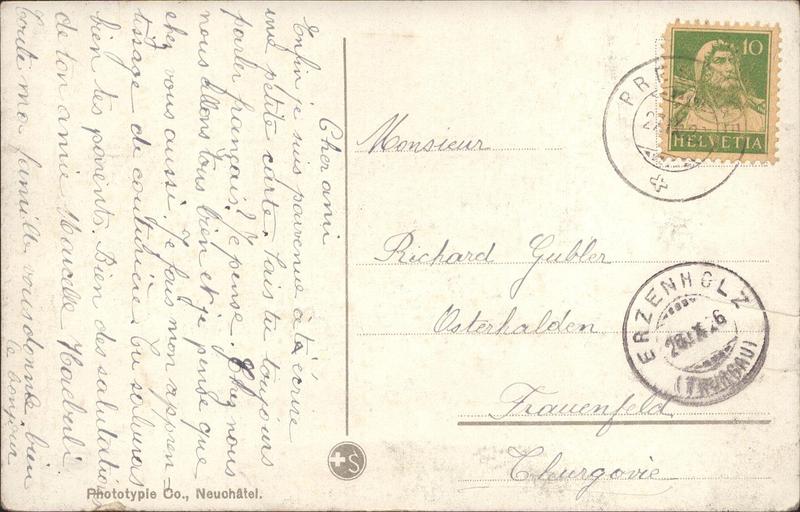 Cher ami
Enfin je suis parvenue à t'écrire
une petite carte. Sais tu toujours
parler français? Je pense. Chez nous
nous allons tous bien et je pense que
chez vous aussi. Je fais mon appren-
tissage de couturière. Tu salueras
bien tes parents. Bien des salutations
de ton amie Marcelle
Toute ma famille vous donne bien
le bonjour
Monsieur
Richard Gubler
Osterhalden
Frauenfeld
Thurgovie
10
HELVETIA
ERZENHOLZ
(THURGAU)
Phototypie Co., Neuchâtel.